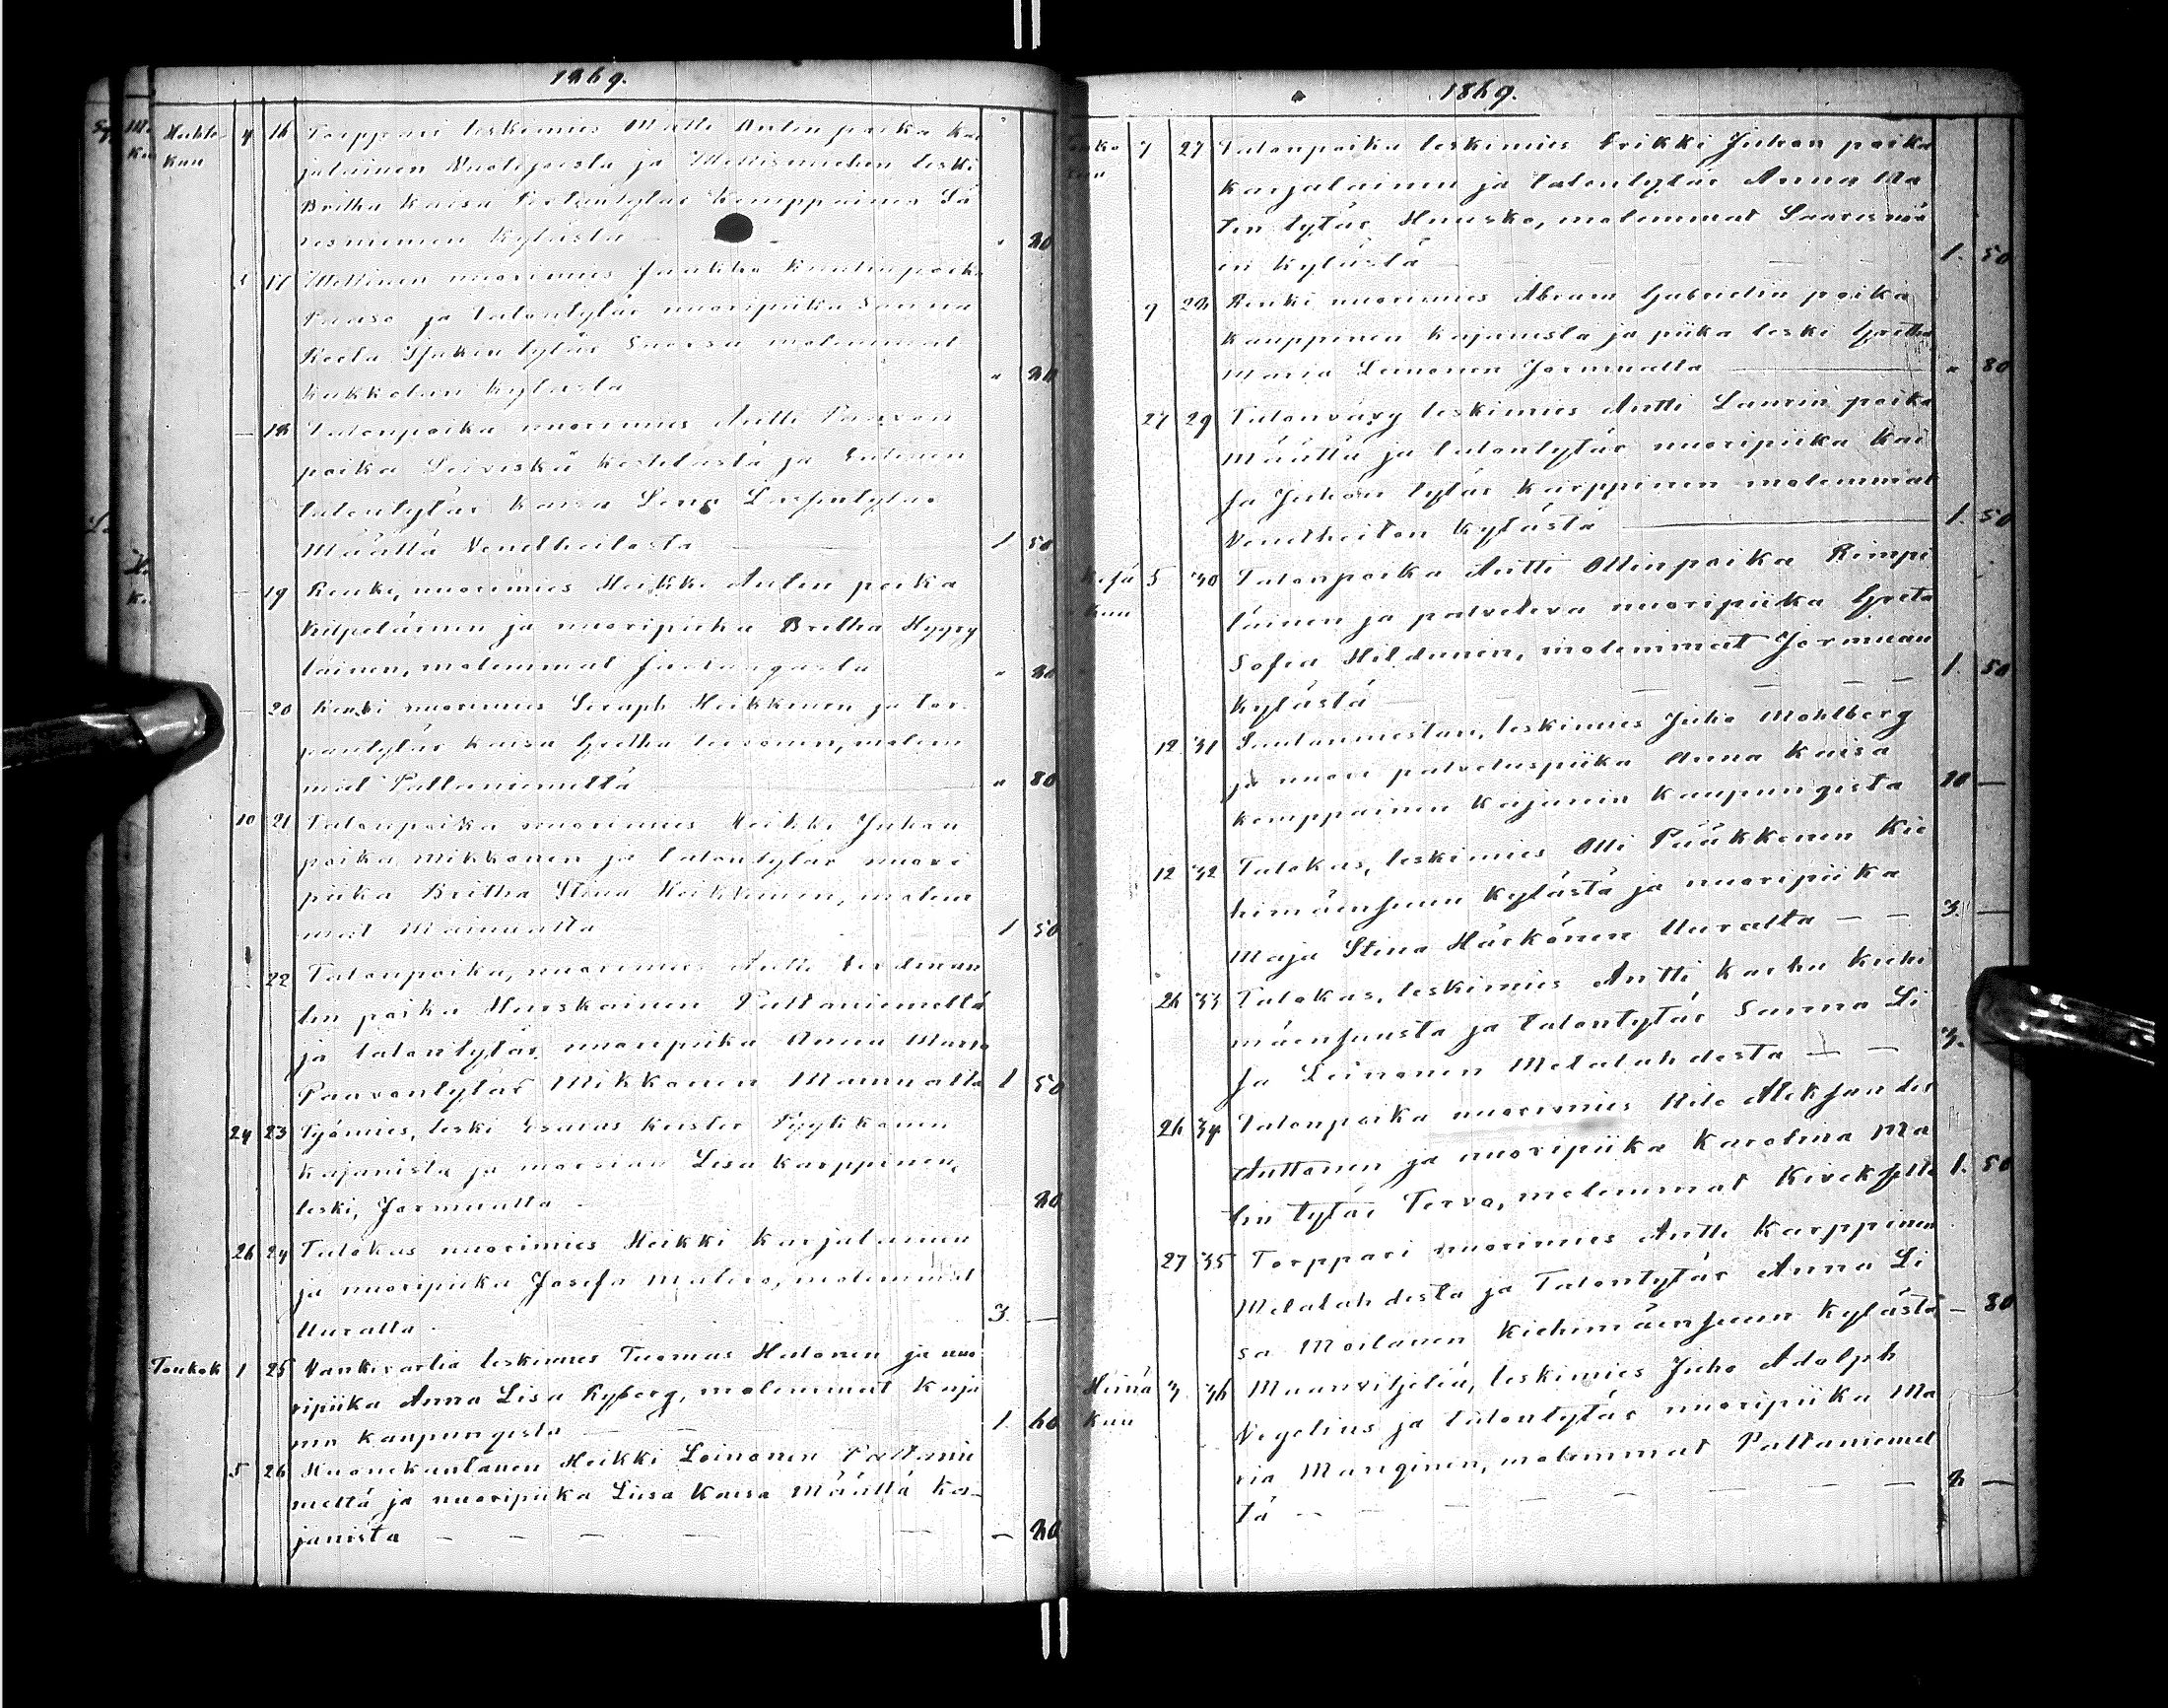 1869.
Huhti kuu 4 16 Torppari leskimies Matti Antin poika Kar
jalainen Vuolijoesta ja Mettismiehen leski
Britha Kaisa Kemppainen Sä
resniemen kylästä - " 80
5 17 Mettinen nuorimies Jaakko poika
ja talontytär nuoripiika Sanna
Reeta Isakin tytär Suorsa molemmat
Kukkolan kylästä " 80
— 18 Talonpoika nuorimies Antti Paavon
poika Leiviskä Kestilästä ja
talontytär Kaisa Lena
Määttä Venetheitosta 1 50
— 19 Renki, nuorimies Heikki Antin poika
Kilpeläinen ja nuoripiika Britha Hyyry
läinen, molemmat " 80
— 20 Renki nuorimies Seraph Heikkinen ja tor
pantytär Kaisa Gretha Leinonen, molem
mat Paltaniemeltä " 80
10 21 Talonpoika nuorimies Heikki Juhon
poika Mikkonen ja talontytär nuori
piika Britha Stina Heikkinen, molem
mat Mainualta 1 50
22 Talonpoika, nuorimies Antti Ferdinan
tin poika Huuskainen Paltaniemeltä
ja talontytär nuoripiika Anna Maria
Paavontytär Mikkonen Mainualta 1 50
24 23 Työmies, leski Esaias Keisler Pyykkönen
Kajanista ja morsian Lisa Karppinen,
leski, Jormualta - 80
26 24 Talokas nuorimies Heikki Karjalainen
ja nuoripiika Josefa Mulero, molemmat
Uuralta - 3. —
Toukok 1 25 Vankivartia leskimies Tuomas Hutonen ja nuo
ripiika Anna Lisa Ryberg, molemmat Kaja
nin kaupungista 1. 60
5 26 Huonekuntanen Heikki Leinonen Paltanie
meltä ja nuoripiika Liisa Kaisa Määttä Ka
janista — — — — — — 80
1869.
Touko kuu 7 27 Talonpoika leskimies Erikki Juhon poika
Karjalainen ja talontytär Anna Ma
tin tytär Huusko, molemmat Saaresmä
in kylästä 1. 50
9 28 Renki nuorimies Abram Gabrielin poika
Kauppinen Kajanista ja piika leski Gretha
Maria Leinonen Jormualta " 80
27 29 Talonvävy leskimies Antti Laurin poika
Määttä ja talontytär nuoripiika Kai
sa Juhon tytär Karppinen molemmat
Venetheiton kylästä 1. 50
Kesä kuu 5 30 Talonpoika Antti Ollinpoika Rimpi
läinen ja palveleva nuoripiika Greta
Sofia Heldunen, molemmat Jormuan
kylästä — — — — 1. 50
12 31 Suutarimestari, leskimies Juho Mohlberg
ja nuori palveluspiika Anna Kaisa
Kemppainen Kajanin kaupungista 10 —
12 32 Talokas, leskimies Olli Pääkkönen Kie
himäensuun kylästä ja nuoripiika
Maja Stina Härkönen Uuralta — — 3. —
26 33 Talokas, leskimies Antti Karhu Kiehi
mäensuusta ja talontytär Sanna Li
sa Leinonen Melalahdesta — — 3.
26 34 Talonpoika nuorimies Nilo Aleksander
Anttonen ja nuoripiika Karolina Ma
tin tytär Tervo, molemmat 1. 50
27 35 Torppari nuorimies Antti Karppinen
Melalahdesta ja Talontytär Anna Li
sa Moilanen Kiehimäensuun kylästä — 80
Heinä kuu 3 36 Maanviljeliä, leskimies Juho Adolph
Vegelius ja talontytär nuoripiika Ma
ria Mariginin, molemmat Paltaniemel
tä — — — — — — — 2 —